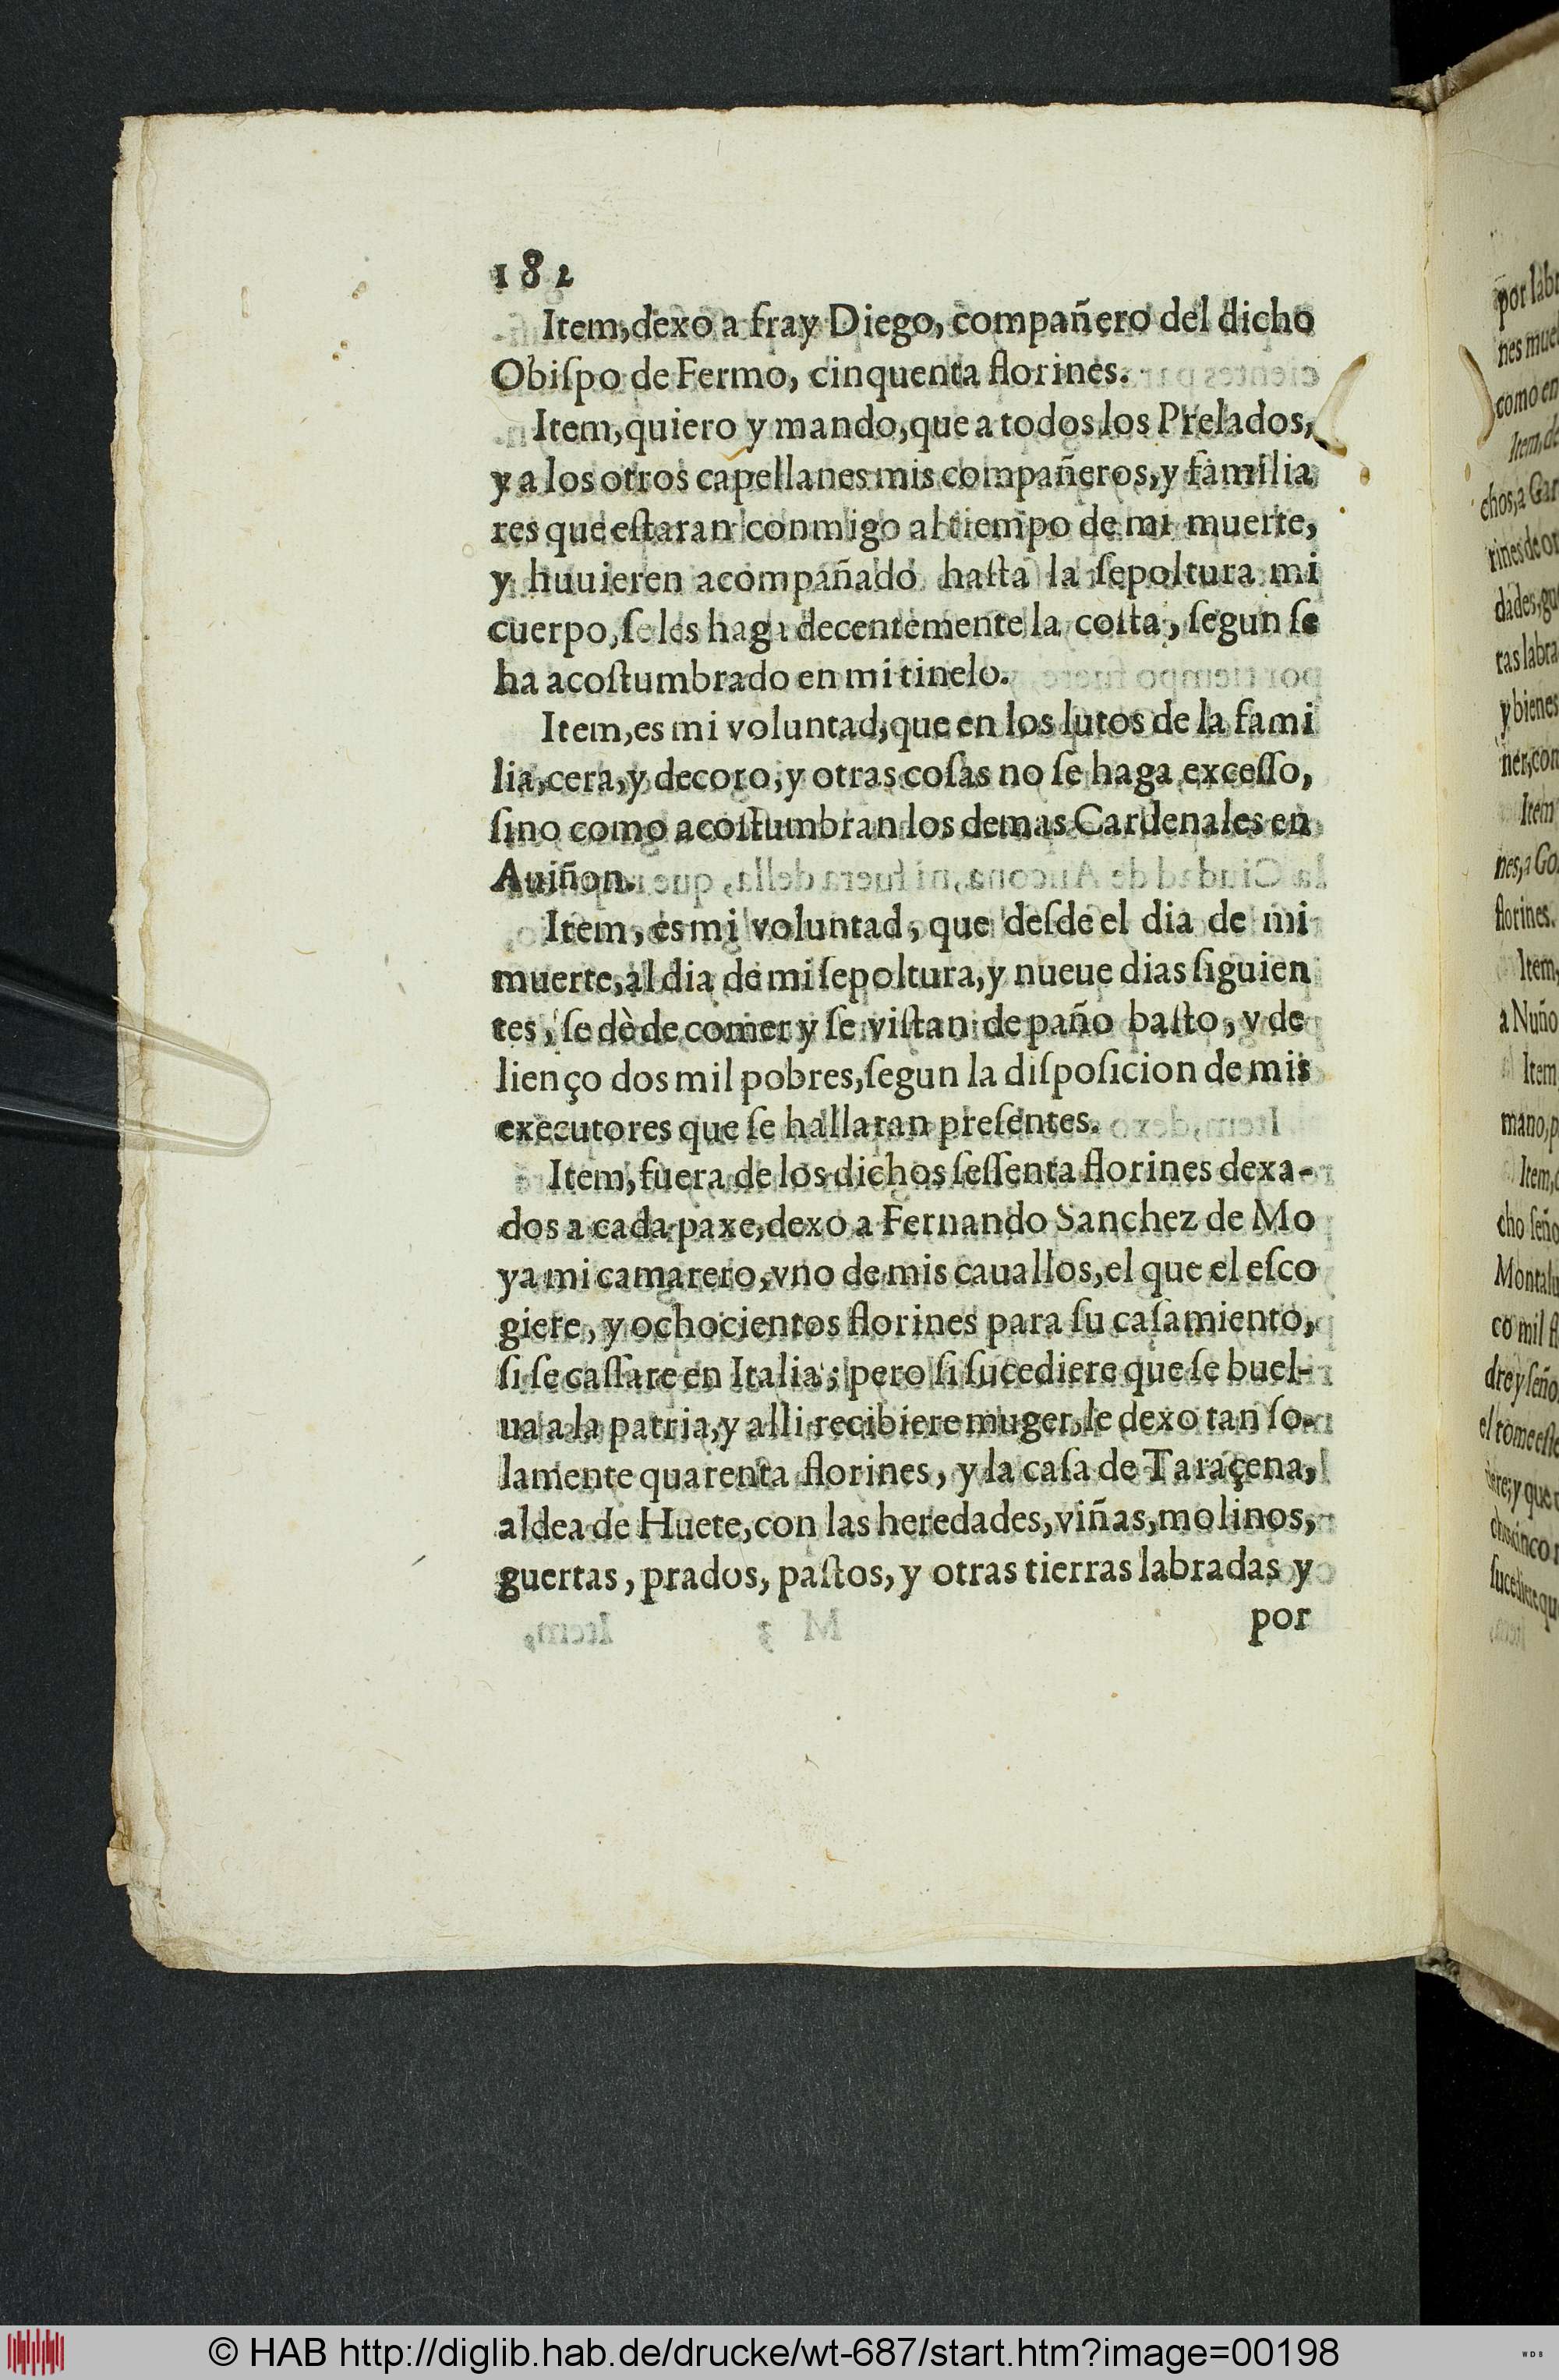 182
Item, dexo a fray Diego, compañero del dicho
Obiſpo de Fermo, cinquenta florines.
Item, quiero y mando, que a todos los Prelados,
y a los otros capellanes mis compañeros, y familia
res que eſtaran conmigo al tiempo de mi muerte,
y huuieren acompañado haſta la ſepoltura mi
cuerpo, ſe les haga decentemente la coſta, ſegun ſe
ha acoſtumbrado en mi tinelo.
Item, es mi voluntad, que en los lutos de la fami
lia, cera, y decoro, y otras coſas no ſe haga exceſſo,
ſino como acoſtumbran los demas Cardenales en
Auiñon.
Item, es mi voluntad, que deſde el dia de mi
muerte, al dia de mi ſepoltura, y nueue dias ſiguien
tes, ſe dè de comer y ſe viſtan de paño baſto, y de
lienço dos mil pobres, ſegun la diſpoſicion de mis
executores que ſe hallaran preſentes.
Item, fuera de los dichos ſeſſenta florines dexa-
dos a cada paxe, dexo a Fernando Sanchez de Mo
ya mi camarero, vno de mis cauallos, el que el eſco
giere, y ochocientos florines para ſu caſamiento,
ſi ſe caſſare en Italia; pero ſi ſucediere que ſe buel-
ua a la patria, y alli recibiere muger, le dexo tan ſo-
lamente quarenta florines, y la caſa de Taraçena,
aldea de Huete, con las heredades, viñas, molinos,
guertas, prados, paſtos, y otras tierras labradas y
por
© HAB http://diglib.hab.de/drucke/wt-687/start.htm?image=00198